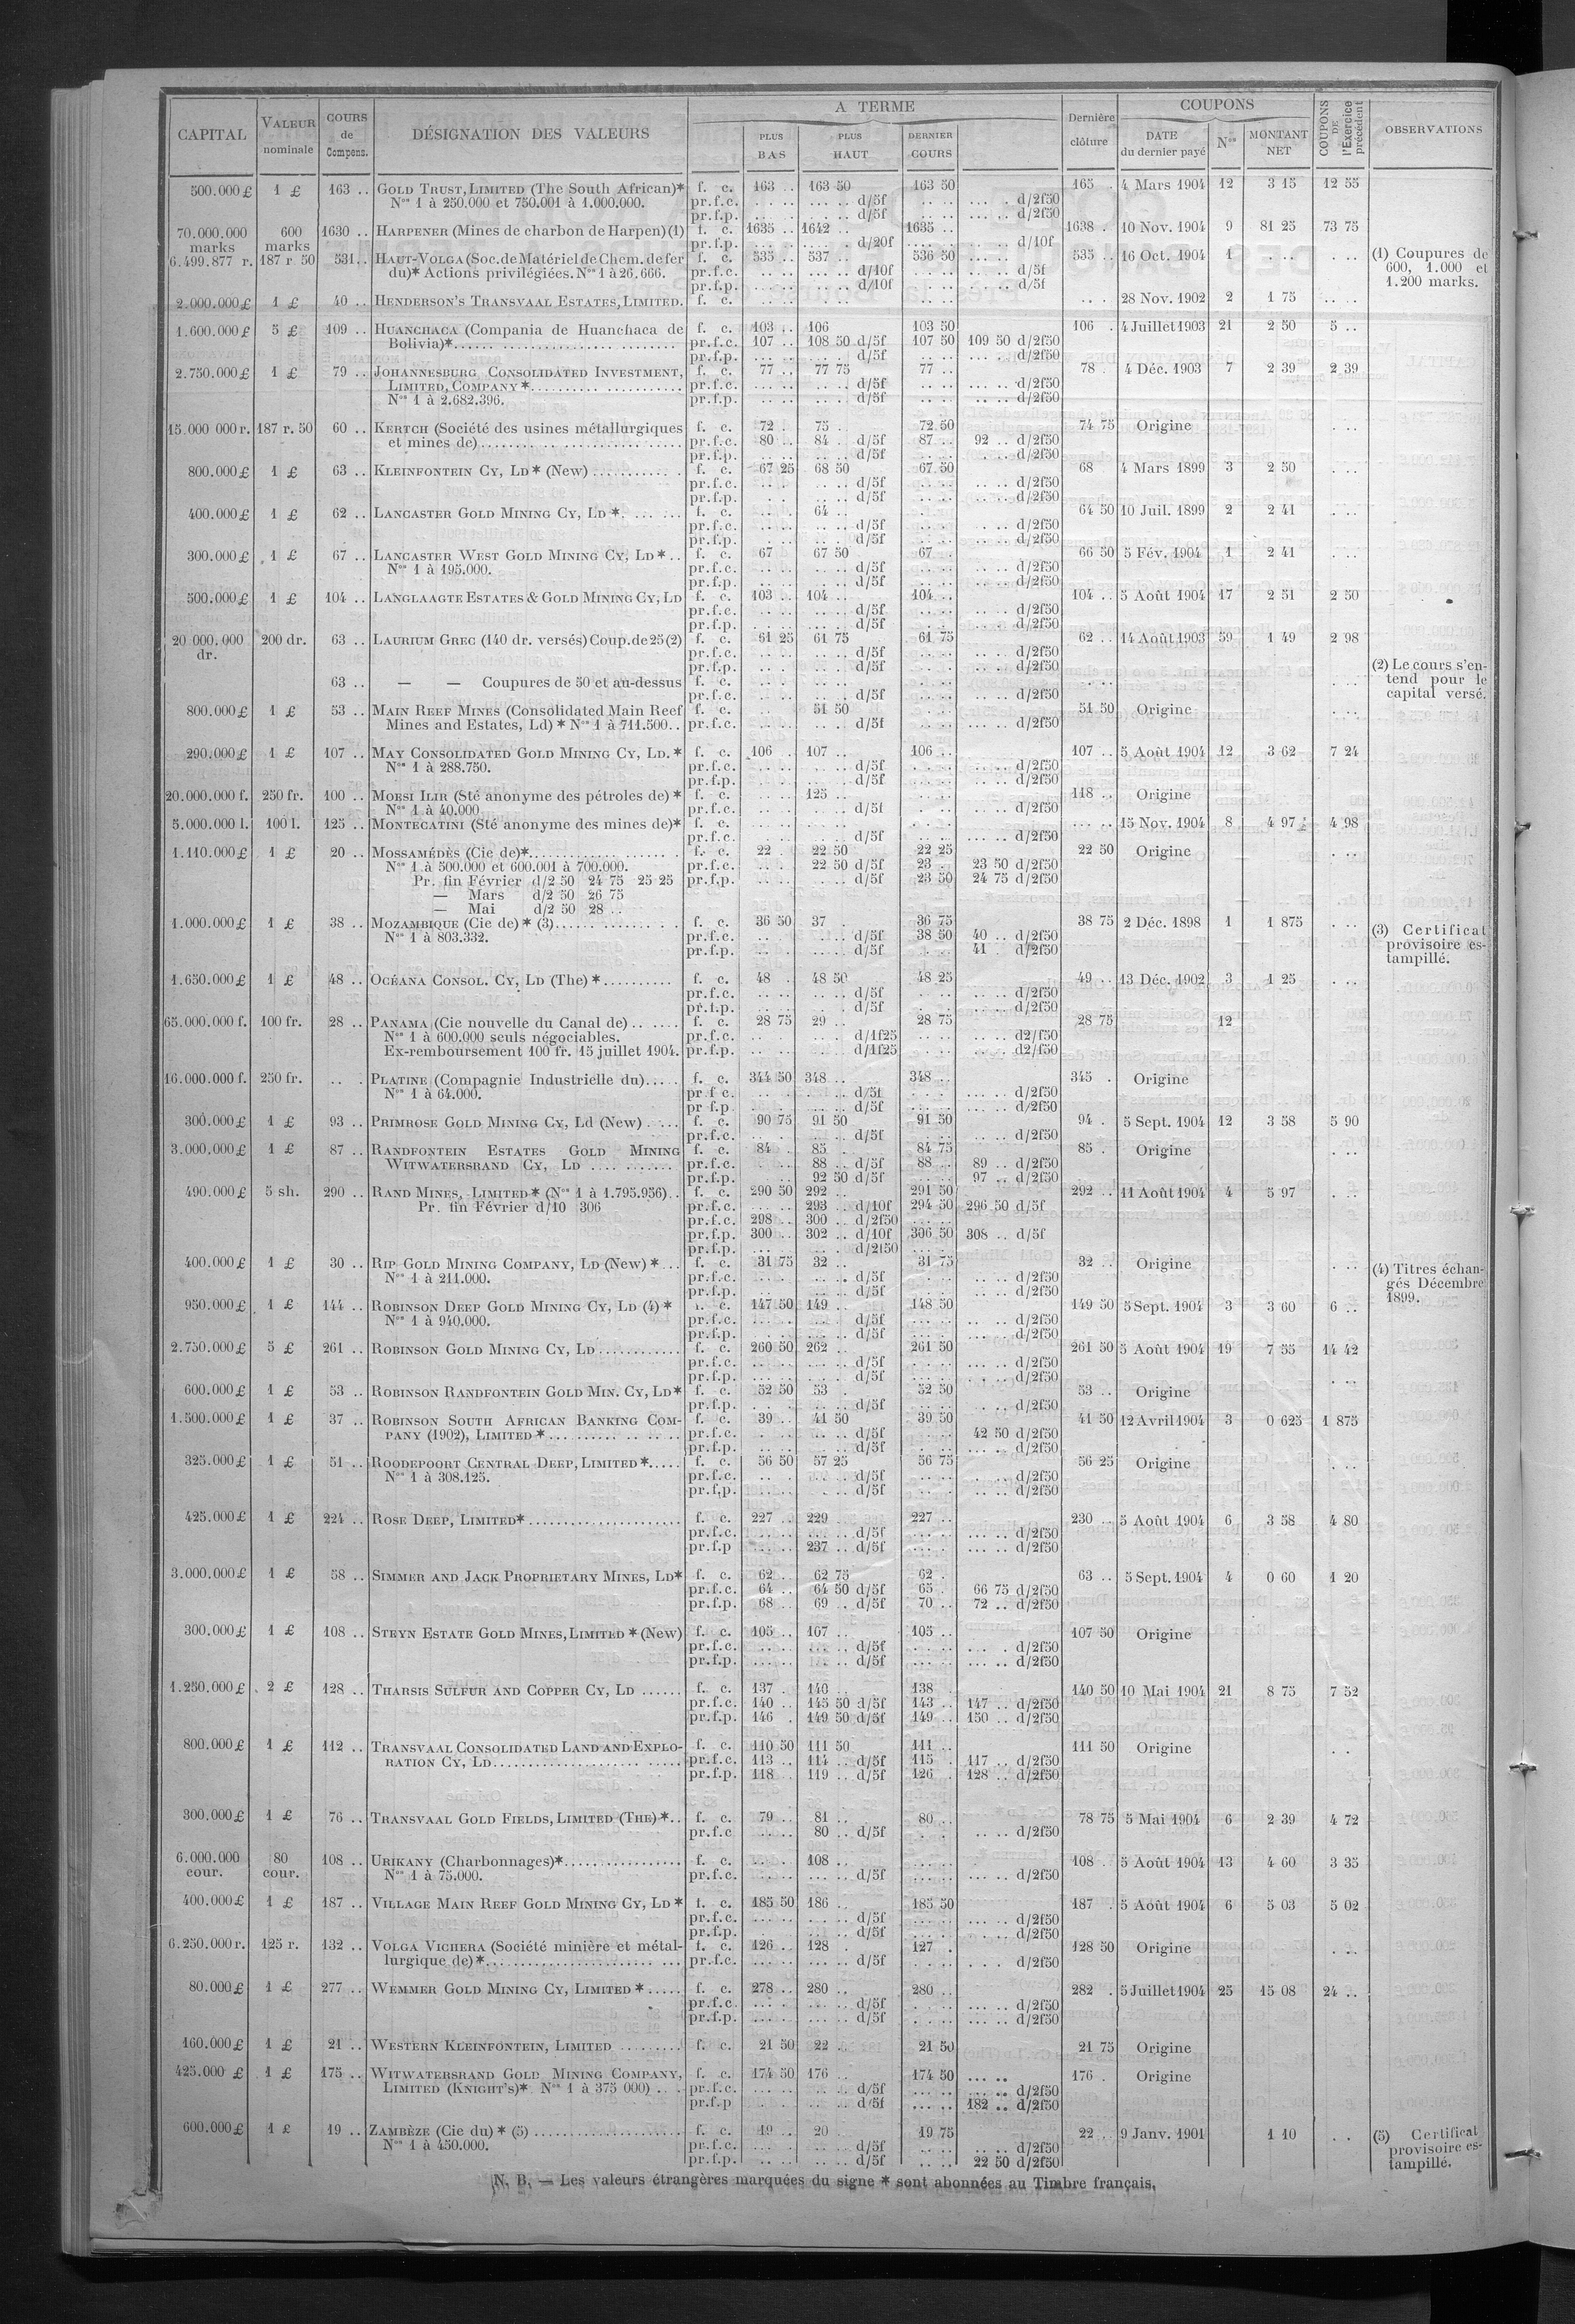 CAPITAL | VALEUR nominale | COURS de Compens. | DÉSIGNATION DES VALEURS | A TERME | Dernière clôture | COUPONS | COUPONS DE l'Exercice précédent | OBSERVATIONS
PLUS BAS | PLUS HAUT | DERNIER COURS | DATE du dernier payé | Nos | MONTANT NET
500.000 £ 1 £ 163 .. GOLD TRUST, LIMITED (The South African)* f. c. 163 .. 163 50 163 50 165 . 4 Mars 1904 12 3 15 12 55
Nos 1 à 250.000 et 750.001 à 1.000.000. pr.f.c. d/5f d/2f50
pr.f.p. d/5f d/2f50
70.000.000 marks 600 marks 1630 .. HARPENER (Mines de charbon de Harpen) (1) f. c. 1635 .. 1642 .. 1635 .. 1638 . 10 Nov. 1904 9 81 25 73 75
pr.f.p. d/20f d/10f
6.499.877 r. 187 r. 50 531 .. HAUT-VOLGA (Soc. de Matériel de Chem. de fer f. c. 535 .. 537 .. 536 50 535 .. 16 Oct. 1904 1 (1) Coupures de
du)* Actions privilégiées. Nos 1 à 26.666. pr.f.c. d/10f d/5f 600, 1.000 et
pr.f.p. d/10f d/5f 1.200 marks.
2.000.000 £ 1 £ 40 .. HENDERSON'S TRANSVAAL ESTATES, LIMITED. f. c. 28 Nov. 1902 2 1 75
1.600.000 £ 5 £ 109 .. HUANCHACA (Compania de Huanchaca de f. c. 103 .. 106 103 50 106 . 4 Juillet 1903 21 2 50 5 ..
Bolivia)* pr.f.c. 107 .. 108 50 d/5f 107 50 109 50 d/2f50
pr.f.p. d/5f d/2f50
2.750.000 £ 1 £ 79 .. JOHANNESBURG CONSOLIDATED INVESTMENT, f. c. 77 .. 77 75 77 .. 78 . 4 Déc. 1903 7 2 39 2 39
LIMITED, COMPANY * pr.f.c. d/5f d/2f50
Nos 1 à 2.682.396. pr.f.p. d/5f d/2f50
15.000 000 r. 187 r. 50 60 .. KERTCH (Société des usines métallurgiques f. c. 72 . 75 . 72 50 74 75 Origine
et mines de) pr.f.c. 80 .. 84 . d/5f 87 .. 92 .. d/2f50
pr.f.p. d/5f d/2f50
800.000 £ 1 £ 63 .. KLEINFONTEIN CY, LD * (New) f. c. 67 25 68 50 67 50 68 4 Mars 1899 3 2 50
pr.f.c. d/5f d/2f50
pr.f.p. d/5f d/2f50
400.000 £ 1 £ 62 .. LANCASTER GOLD MINING CY, LD * f. c. 64 .. 64 50 10 Juil. 1899 2 2 41
pr.f.c. d/5f d/2f50
pr.f.p. d/5f d/2f50
300.000 £ 1 £ 67 .. LANCASTER WEST GOLD MINING CY, LD * f. c. 67 67 50 67 . 66 50 5 Fév. 1904 1 2 41
Nos 1 à 195.000. pr.f.c. d/5f d/2f50
pr.f.p. d/5f d/2f50
500.000 £ 1 £ 104 .. LANGLAAGTE ESTATES & GOLD MINING CY, LD f. c. 103 .. 104 .. 104 .. 104 .. 5 Août 1904 17 2 51 2 50
pr.f.c. d/5f d/2f50
pr.f.p. d/5f d/2f50
20 000.000 dr. 200 dr. 63 .. LAURIUM GREC (140 dr. versés) Coup. de 25 (2) f. c. 61 25 61 75 61 75 62 .. 14 Août 1903 59 1 49 2 98
pr.f.c. d/5f d/2f50
pr.f.p. d/5f d/2f50 (2) Le cours s'en-
63 .. — — Coupures de 50 et au-dessus f. c. tend pour le
pr.f.c. d/5f d/2f50 capital versé.
800.000 £ 1 £ 53 .. MAIN REEF MINES (Consolidated Main Reef f. c. 51 50 51 50 Origine
Mines and Estates, Ld) * Nos 1 à 711.500 .. pr.f.c. d/5f d/2f50
290.000 £ 1 £ 107 .. MAY CONSOLIDATED GOLD MINING CY, LD. * f. c. 106 . 107 .. 106 .. 107 .. 5 Août 1904 12 3 62 7 24
Nos 1 à 288.750. pr.f.c. d/5f d/2f50
pr.f.p. d/5f d/2f50
20.000.000 f. 250 fr. 100 .. MOESI ILIR (Sté anonyme des pétroles de) * f. c. 125 .. 118 .. Origine
Nos 1 à 40.000 pr.f.c. d/5f d/2f50
5.000.000 l. 100 l. 125 .. MONTECATINI (Sté anonyme des mines de)* f. c. 15 Nov. 1904 8 4 97 4 98
pr.f.c. d/5f d/2f50
1.110.000 £ 1 £ 20 .. MOSSAMÉDÈS (Cie de)* f. c. 22 . 22 50 22 25 22 50 Origine
Nos 1 à 500.000 et 600.001 à 700.000. pr.f.c. 22 50 d/5f 23 . 23 50 d/2f50
Pr. fin Février d/2 50 24 75 25 25 pr.f.p. d/5f 23 50 24 75 d/2f50
— Mars d/2 50 26 75
— Mai d/2 50 28 ..
1.000.000 £ 1 £ 38 .. MOZAMBIQUE (Cie de) * (3) f. c. 36 50 37 . 36 75 38 75 2 Déc. 1898 1 1 875 (3) Certificat
Nos 1 à 803.332. pr.f.c. d/5f 38 50 40 .. d/2f50 provisoire es-
pr.f.p. d/5f 41 . d/2f50 tampillé.
1.650.000 £ 1 £ 48 .. OCÉANA CONSOL. CY, LD (The) * f. c. 48 . 48 50 48 25 49 .. 13 Déc. 1902 3 1 25
pr.f.c. d/5f d/2f50
pr.f.p. d/5f d/2f50
65.000.000 f. 100 fr. 28 .. PANAMA (Cie nouvelle du Canal de) f. c. 28 75 29 .. 28 75 28 75 12
Nos 1 à 600.000 seuls négociables. pr.f.c. d/1f25 d2/f50
Ex-remboursement 100 fr. 15 juillet 1904. pr.f.p. d/1f25 d2/f50
16.000.000 f. 250 fr. PLATINE (Compagnie Industrielle du) f. c. 344 50 348 .. 348 .. 345 . Origine
Nos 1 à 64.000. pr f c. d/5f d/2f50
pr f.p. d/5f d/2f50
300.000 £ 1 £ 93 .. PRIMROSE GOLD MINING CY, Ld (New) f. c. 90 75 91 50 91 50 94 . 5 Sept. 1904 12 3 58 5 90
pr.f.c. d/5f d/2f50
3.000.000 £ 1 £ 87 .. RANDFONTEIN ESTATES GOLD MINING f. c. 84 . 85 .. 84 75 85 . Origine
WITWATERSRAND CY, LD pr.f.c. 88 .. d/5f 88 .. 89 .. d/2f50
pr.f.p. 92 50 d/5f 97 .. d/2f50
490.000 £ 5 sh. 290 .. RAND MINES, LIMITED * (Nos 1 à 1.795.956) .. f. c. 290 50 292 .. 291 50 292 .. 11 Août 1904 4 5 97
Pr. fin Février d/10 306 pr.f.c. 293 .. d/10f 294 50 296 50 d/5f
pr.f.c. 298 .. 300 .. d/2f50
pr.f.p. 300 .. 302 .. d/10f 306 50 308 .. d/5f
pr.f.p. d/2f50
400.000 £ 1 £ 30 .. RIP GOLD MINING COMPANY, LD (New) * f. c. 31 75 32 .. 31 75 32 .. Origine (4) Titres échan-
Nos 1 à 211.000. pr.f.c. d/5f d/2f50 gés Décembre
pr.f.p. d/5f d/2f50 1899.
950.000 £ 1 £ 144 .. ROBINSON DEEP GOLD MINING CY, LD (4) * f. c. 147 50 149 .. 148 50 149 50 5 Sept. 1904 3 3 60 6 ..
Nos 1 à 940.000. pr.f.c. d/5f d/2f50
pr.f.p. d/5f d/2f50
2.750.000 £ 5 £ 261 .. ROBINSON GOLD MINING CY, LD f. c. 260 50 262 .. 261 50 261 50 5 Août 1904 19 7 55 14 42
pr.f.c. d/5f d/2f50
pr.f.p. d/5f d/2f50
600.000 £ 1 £ 53 .. ROBINSON RANDFONTEIN GOLD MIN. CY, LD* f. c. 52 50 53 . 52 50 53 .. Origine
pr.f.p. d/5f d/2f50
1.500.000 £ 1 £ 37 .. ROBINSON SOUTH AFRICAN BANKING COM- f. c. 39 .. 41 50 39 50 41 50 12 Avril 1904 3 0 625 1 875
PANY (1902), LIMITED * pr.f.c. d/5f 42 50 d/2f50
pr.f.p. d/5f d/2f50
325.000 £ 1 £ 51 .. ROODEPOORT CENTRAL DEEP, LIMITED * f. c. 56 50 57 25 56 75 56 25 Origine
Nos 1 à 308.125. pr.f.c. d/5f d/2f50
pr.f.p. d/5f d/2f50
425.000 £ 1 £ 224 .. ROSE DEEP, LIMITED* f. c. 227 .. 229 227 .. 230 .. 5 Août 1904 6 3 58 4 80
pr.f.c. d/5f d/2f50
pr.f.p 237 .. d/5f d/2f50
3.000.000 £ 1 £ 58 .. SIMMER AND JACK PROPRIETARY MINES, LD* f. c. 62 .. 62 75 62 . 63 .. 5 Sept. 1904 4 0 60 1 20
pr.f.c. 64 .. 64 50 d/5f 65 . 66 75 d/2f50
pr.f.p. 68 .. 69 .. d/5f 70 .. 72 .. d/2f50
300.000 £ 1 £ 108 .. STEYN ESTATE GOLD MINES, LIMITED * (New) f. c. 105 .. 107 .. 105 .. 107 50 Origine
pr.f.c. d/5f d/2f50
pr.f.p. d/5f d/2f50
1.250.000 £ 2 £ 128 .. THARSIS SULFUR AND COPPER CY, LD f. c. 137 . 140 .. 138 . 140 50 10 Mai 1904 21 8 75 7 52
pr.f.c. 140 .. 145 50 d/5f 143 .. 147 .. d/2f50
pr.f.p. 146 . 149 50 d/5f 149 .. 150 .. d/2f50
800.000 £ 1 £ 112 .. TRANSVAAL CONSOLIDATED LAND AND EXPLO- f. c. 110 50 111 50 111 .. 111 50 Origine
RATION CY, LD pr.f.c. 113 .. 114 .. d/5f 115 . 117 .. d/2f50
pr.f.p. 118 .. 119 .. d/5f 126 . 128 .. d/2f50
300.000 £ 1 £ 76 .. TRANSVAAL GOLD FIELDS, LIMITED (THE) * f. c. 79 .. 81 .. 80 .. 78 75 5 Mai 1904 6 2 39 4 72
pr.f.c 80 .. d/5f d/2f50
6.000.000 cour. 80 cour. 108 .. URIKANY (Charbonnages)* f. c. 108 .. 108 . 5 Août 1904 13 4 60 3 35
Nos 1 à 75.000. pr.f.c. d/5f d/2f50
400.000 £ 1 £ 187 .. VILLAGE MAIN REEF GOLD MINING CY, LD * f. c. 185 50 186 .. 185 50 187 . 5 Août 1904 6 5 03 5 02
pr.f.c. d/5f d/2f50
pr.f.p. d/5f d/2f50
6.250.000 r. 125 r. 132 .. VOLGA VICHERA (Société minière et métal- f. c. 126 .. 128 . 127 . 128 50 Origine
lurgique de) * pr.f.c. d/5f d/2f50
80.000 £ 1 £ 277 .. WEMMER GOLD MINING CY, LIMITED * f. c. 278 .. 280 .. 280 .. 282 . 5 Juillet 1904 25 15 08 24 ..
pr.f.c. d/5f d/2f50
pr.f.p. d/5f d/2f50
160.000 £ 1 £ 21 .. WESTERN KLEINFONTEIN, LIMITED f. c. 21 50 22 .. 21 50 21 75 Origine
425.000 £ 1 £ 175 .. WITWATERSRAND GOLD MINING COMPANY, f. c. 174 50 176 .. 174 50 176 . Origine
LIMITED (KNIGHT'S)* Nos 1 à 375 000) pr.f.c. d/5f d/2f50
pr.f.p d/5f 182 .. d/2f50
600.000 £ 1 £ 19 .. ZAMBÈZE (Cie du) * (5) f. c. 19 .. 20 . 19 75 22 .. 9 Janv. 1901 1 10 (5) Certificat
Nos 1 à 450.000. pr.f.c. d/5f d/2f50 provisoire es-
pr.f.p. d/5f 22 50 d/2f50 tampillé.
N. B. — Les valeurs étrangères marquées du signe * sont abonnées au Timbre français.